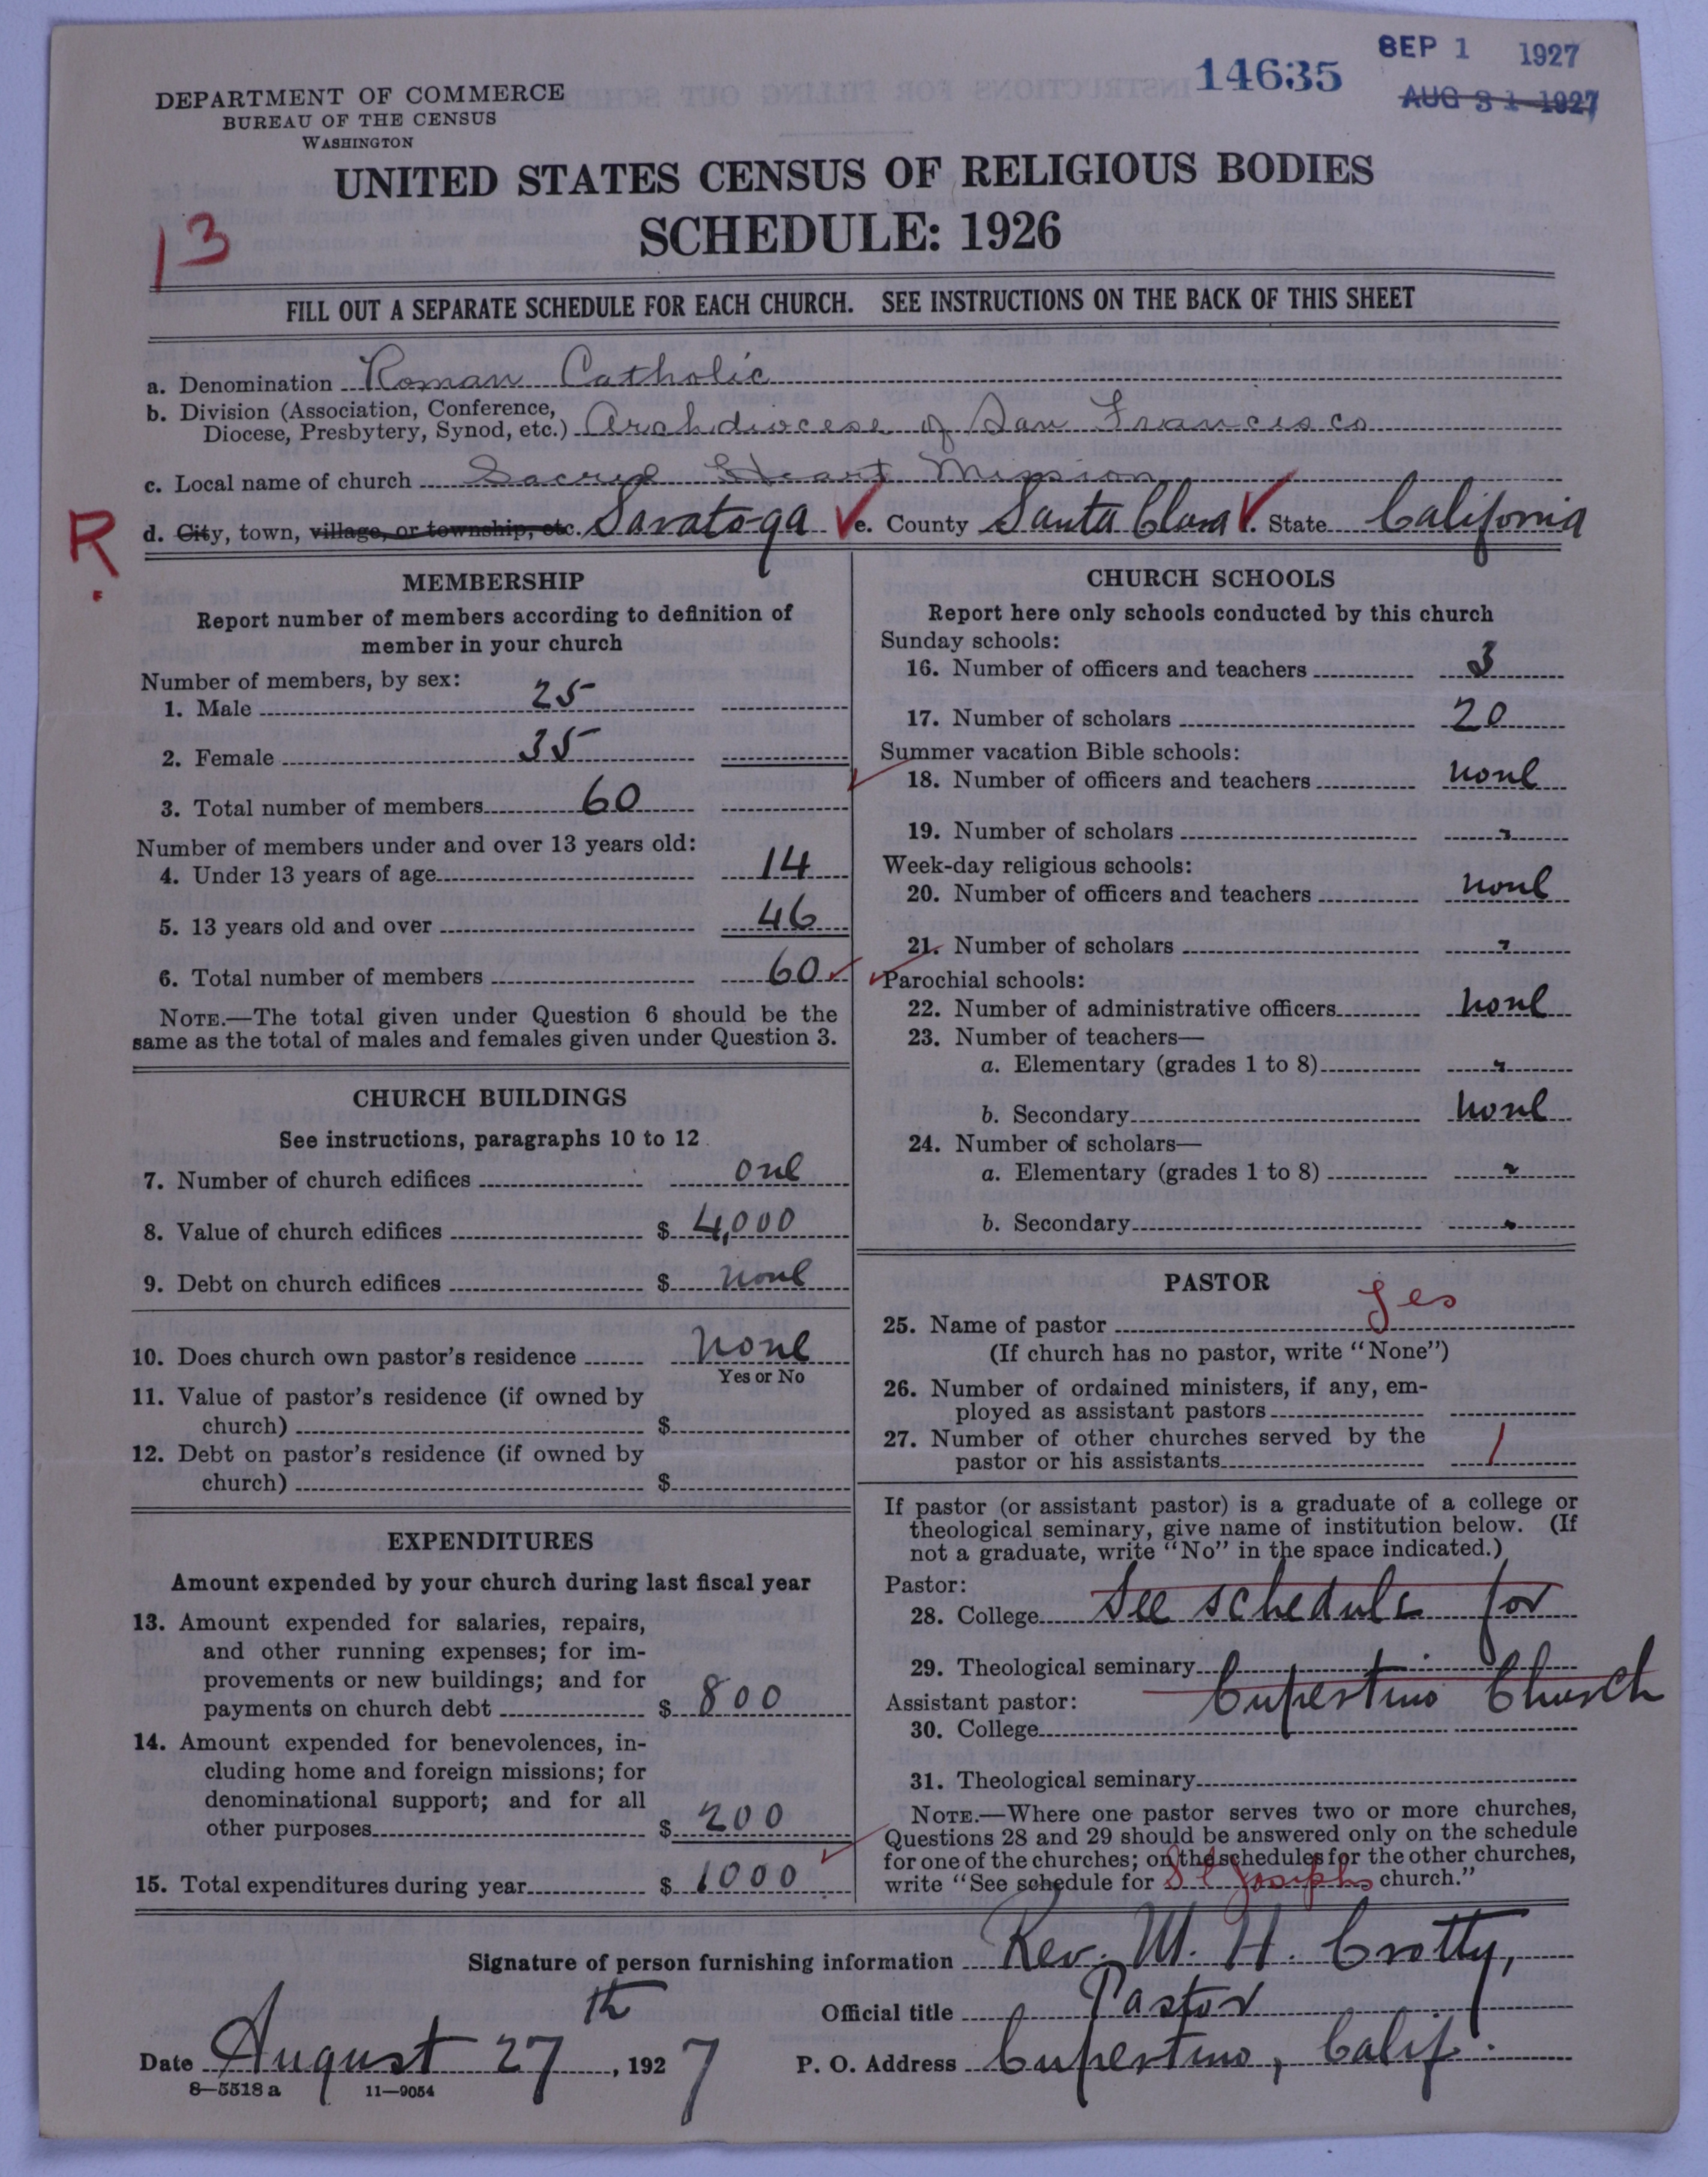 14635
SEP 1 1927
AUG 31 1927
DEPARTMENT OF COMMERCE
BUREAU OF THE CENSUS
WASHINGTON
UNITED STATES CENSUS OF RELIGIOUS BODIES
SCHEDULE: 1926
13
FILL OUT A SEPARATE SCHEDULE FOR EACH CHURCH. SEE INSTRUCTIONS ON THE BACK OF THIS SHEET
a. Denomination Roman Catholic
b. Division (Association, Conference,
Diocese, Presbytery, Synod, etc.) Archdiocese of San Francisco
c. Local name of church Sacred Heart Mission
R.
d. City, town, village, or township, etc. Saratoga e. County Santa Clara f. State California
MEMBERSHIP
Report number of members according to definition of
member in your church
Number of members, by sex:
1. Male 25
2. Female 35
3. Total number of members 60
Number of members under and over 13 years old:
4. Under 13 years of age 14
5. 13 years old and over 46
6. Total number of members 60
NOTE.—The total given under Question 6 should be the
same as the total of males and females given under Question 3.
CHURCH BUILDINGS
See instructions, paragraphs 10 to 12
7. Number of church edifices one
8. Value of church edifices $ 4,000
9. Debt on church edifices $ none
10. Does church own pastor's residence none
Yes or No
11. Value of pastor's residence (if owned by
church) $
12. Debt on pastor's residence (if owned by
church) $
EXPENDITURES
Amount expended by your church during last fiscal year
13. Amount expended for salaries, repairs,
and other running expenses; for im-
provements or new buildings; and for
payments on church debt $ 800
14. Amount expended for benevolences, in-
cluding home and foreign missions; for
denominational support; and for all
other purposes $ 200
15. Total expenditures during year $ 1000
CHURCH SCHOOLS
Report here only schools conducted by this church
Sunday schools:
16. Number of officers and teachers 3
17. Number of scholars 20
Summer vacation Bible schools:
18. Number of officers and teachers none
19. Number of scholars "
Week-day religious schools:
20. Number of officers and teachers none
21. Number of scholars "
Parochial schools:
22. Number of administrative officers none
23. Number of teachers—
a. Elementary (grades 1 to 8) "
b. Secondary none
24. Number of scholars—
a. Elementary (grades 1 to 8) "
b. Secondary "
PASTOR
25. Name of pastor Yes
(If church has no pastor, write "None")
26. Number of ordained ministers, if any, em-
ployed as assistant pastors
27. Number of other churches served by the
pastor or his assistants 1
If pastor (or assistant pastor) is a graduate of a college or
theological seminary, give name of institution below. (If
not a graduate, write "No" in the space indicated.)
Pastor:
28. College See schedule for
29. Theological seminary Cupertino Church
Assistant pastor:
30. College
31. Theological seminary
NOTE.—Where one pastor serves two or more churches,
Questions 28 and 29 should be answered only on the schedule
for one of the churches; on the schedules for the other churches,
write "See schedule for St Josephs church."
Signature of person furnishing information Rev. M. H. Crotty,
Official title Pastor
Date August 27th, 1927
P. O. Address Cupertino, Calif.
8—5518 a 11—9054